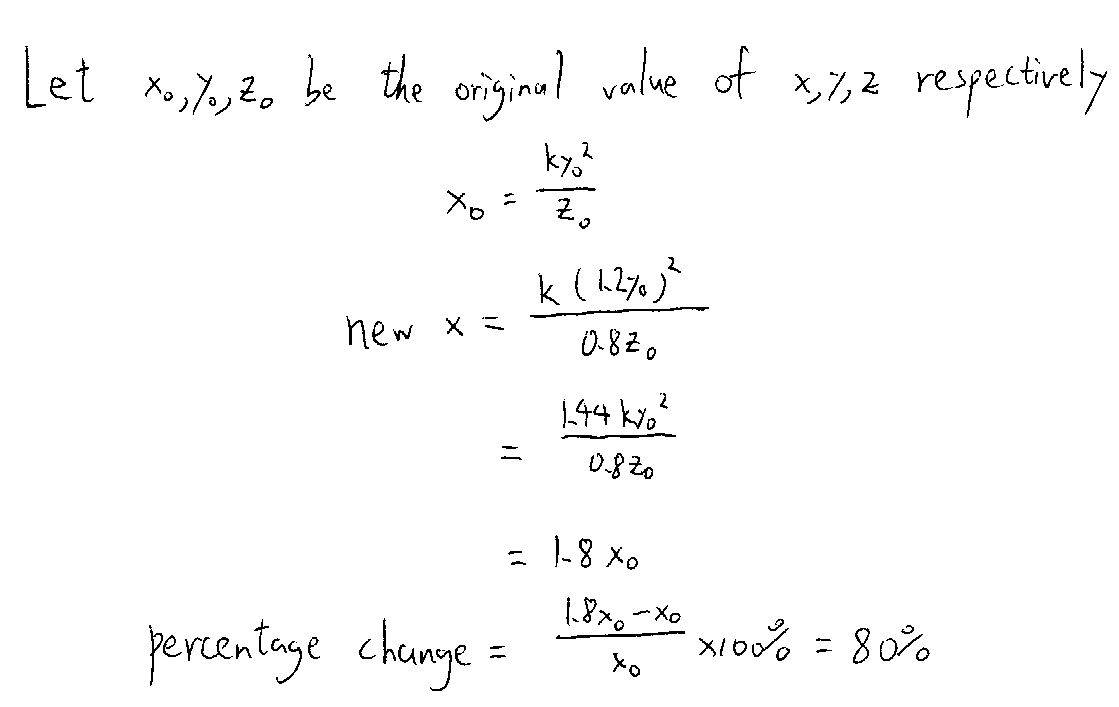 Let x₀, y₀, z₀ be the original value of x, y, z respectively
x₀ = ky₀²/z₀
new x = k(1.2y₀)²/0.8z₀
= 1.44ky₀²/0.8z₀
= 1.8x₀
percentage change = (1.8x₀ - x₀)/x₀ ×100% = 80%